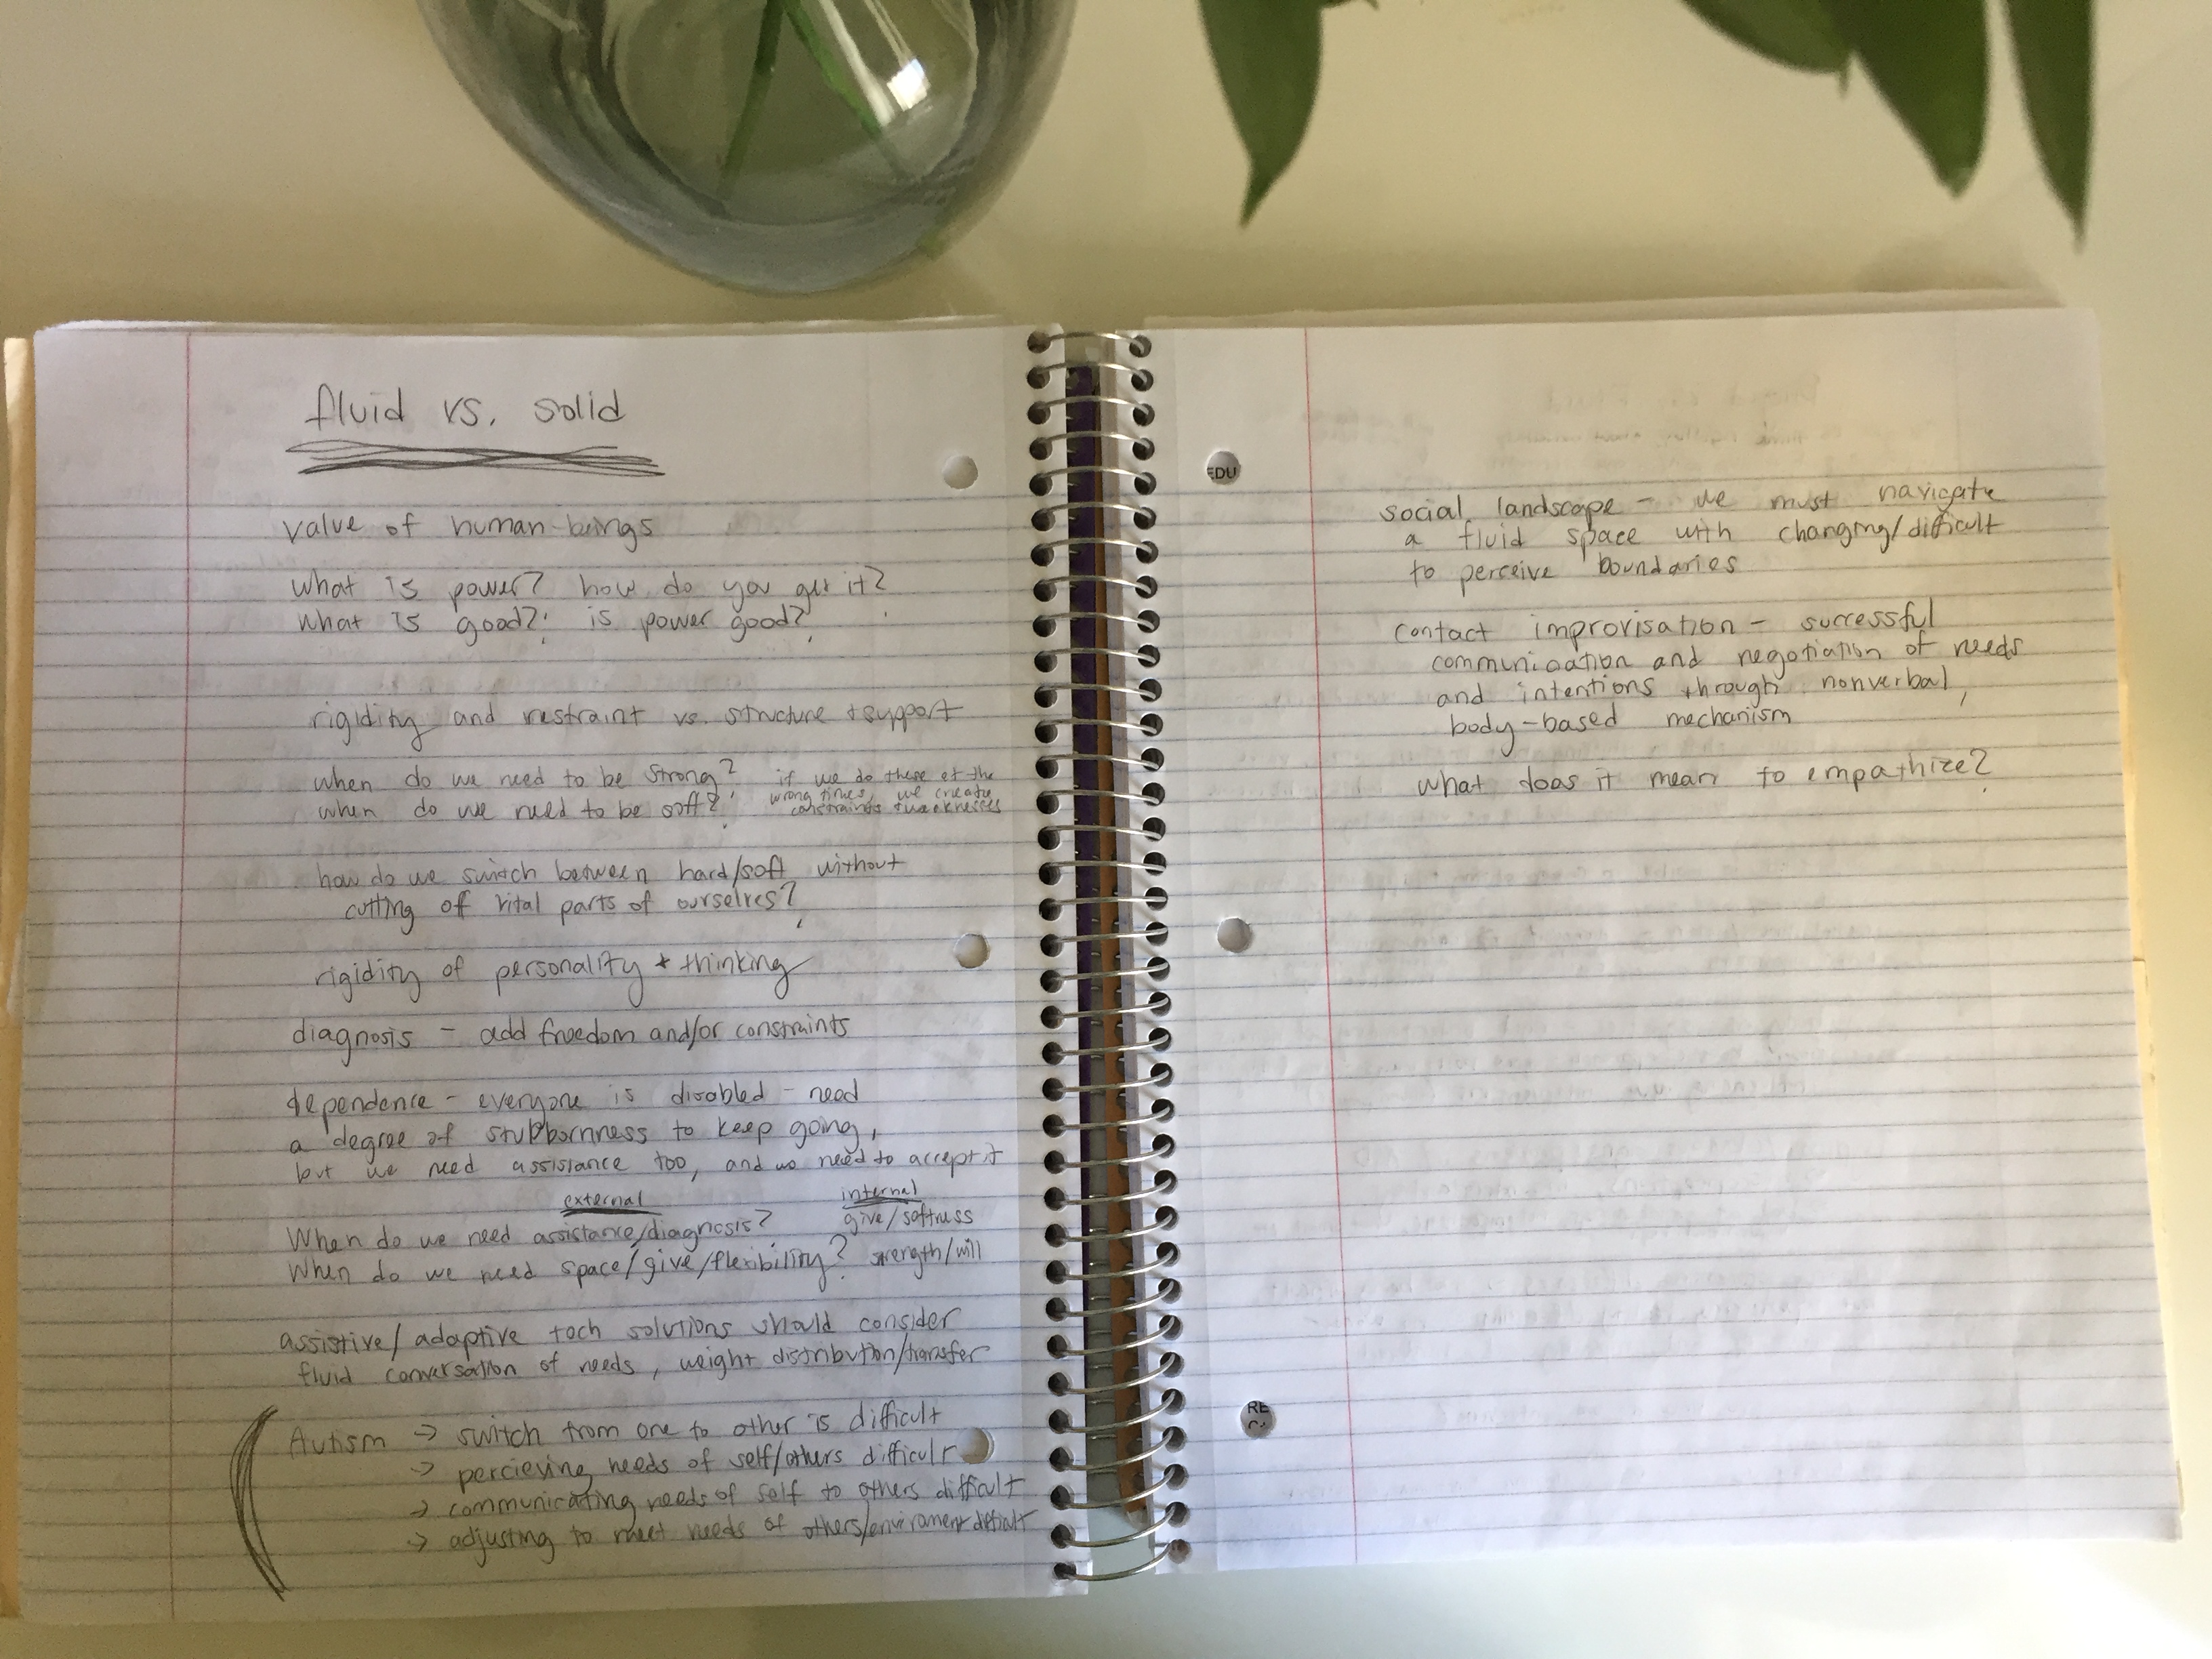 fluid vs. solid
value of human beings
what is power? how do you get it?
what is good? is power good?
rigidity and restraint vs. structure + support
when do we need to be strong? if we do these at the
when do we need to be soft? wrong times, we create
constraints + weaknesses
how do we switch between hard/soft without
cutting of vital parts of ourselves?
rigidity of personality + thinking
diagnosis - add freedom and/or constraints
dependence - everyone is disabled - need
a degree of stubbornness to keep going,
but we need assistance too, and we need to accept it
external internal
When do we need assistance/diagnosis? give/softness
When do we need space/give/flexibility? strength/will
assistive/adaptive tech solutions should consider
fluid conversation of needs, weight distribution/transfer
Autism → switch from one to other is difficult
→ percieving needs of self/others difficult
→ communicating needs of self to others difficult
→ adjusting to meet needs of others/enviroment difficult
EDU
social landscape - we must navigate
a fluid space with changing/difficult
to perceive boundaries
contact improvisation - successful
communication and negotiation of needs
and intentions through nonverbal,
body-based mechanism
what does it mean to empathize?
RE